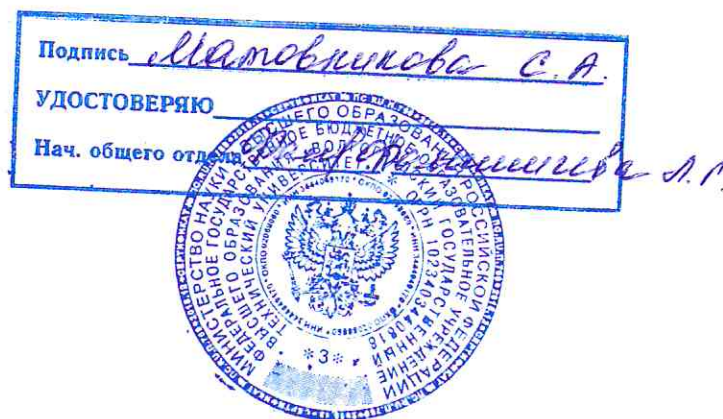 Подпись Мамовникова С. А.
УДОСТОВЕРЯЮ
Нач. общего отдела
МИНИСТЕРСТВО НАУКИ И ВЫСШЕГО ОБРАЗОВАНИЯ РОССИЙСКОЙ ФЕДЕРАЦИИ
ФЕДЕРАЛЬНОЕ ГОСУДАРСТВЕННОЕ БЮДЖЕТНОЕ ОБРАЗОВАТЕЛЬНОЕ УЧРЕЖДЕНИЕ
ВЫСШЕГО ОБРАЗОВАНИЯ ГОСУДАРСТВЕННЫЙ
ТЕХНИЧЕСКИЙ УНИВЕРСИТЕТ ОГРН 1023403440818
*3*